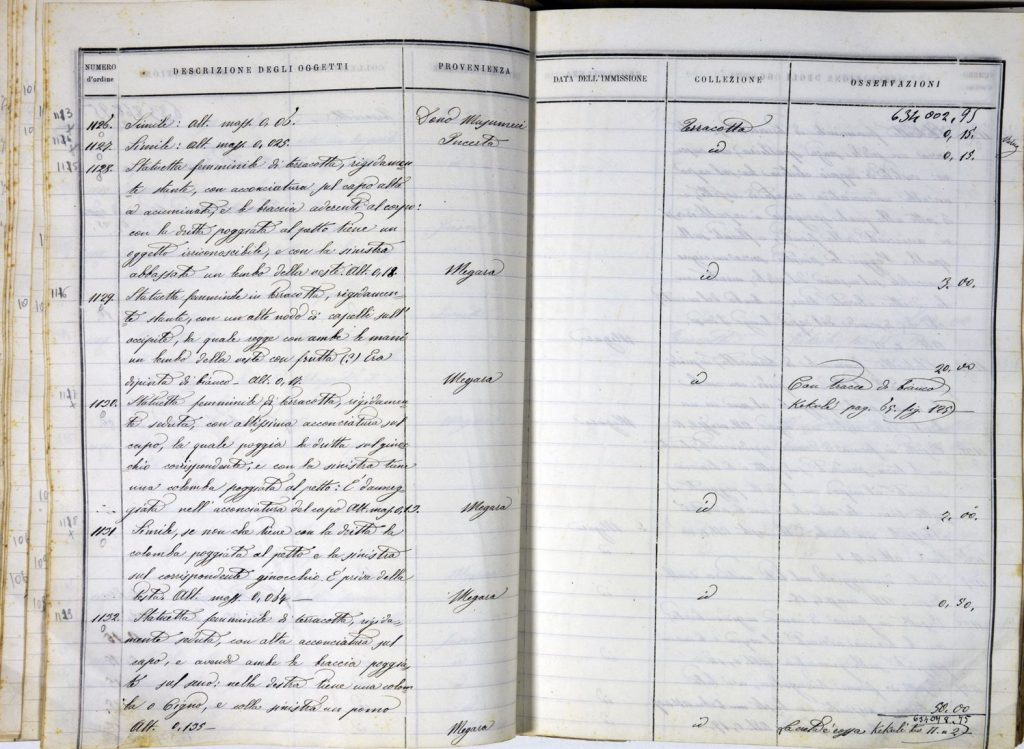 NUMERO d'ordine
DESCRIZIONE DEGLI OGGETTI
PROVENIENZA
DATA DELL'IMMISSIONE
COLLEZIONE
OSSERVAZIONI
634002,95
1126. Simile: alt. mass. 0,06. Dono Terracotta 0,15.
1127. Simile: alt. mass. 0,025. Incerta id 0,15.
1128. Statuetta femminile di terracotta, rigidamen-
te stante, con acconciatura sul capo alta
e acuminata, e le braccia aderenti al corpo:
con la dritta poggiata al petto tiene un
oggetto irriconoscibile, e con la sinistra
abbassata un lembo della veste. Alt. 0,18. Megara id 3.00.
1129. Statuetta femminile in terracotta, rigidamen-
te stante, con un alto nodo di capelli sull'
occipite, la quale regge con ambe le mani
un lembo della veste con frutta (?) Era
dipinta di bianco - Alt. 0,17. Megara id 20.00
Con tracce di bianco
Kekulè pag. 65. fig. 125) —
1130. Statuetta femminile di terracotta, rigidamen-
te seduta, con altissima acconciatura sul
capo, la quale poggia la dritta sul ginoc-
chio corrispondente, e con la sinistra tiene
una colomba poggiata al petto: È danneg-
giata nell'acconciatura del capo Alt. mass. 0,12. Megara id 2.00.
1131 Simile, se non che tiene con la dritta la
colomba poggiata al petto e la sinistra
sul corrispondente ginocchio. È priva della
testa. Alt. mass. 0,064 — Megara id 0,50.
1132. Statuetta femminile di terracotta, rigida-
mente seduta, con alta acconciatura sul
capo, e avendo ambe le braccia poggia-
te sul seno: nella destra tiene una colom-
ba o Cigno, e colla sinistra un pomo
Alt. 0.135 — Megara id 50.00
634078.95
Kekulè tav. II. n 2)
1173
1174
1175
1176
1177
1178
1179